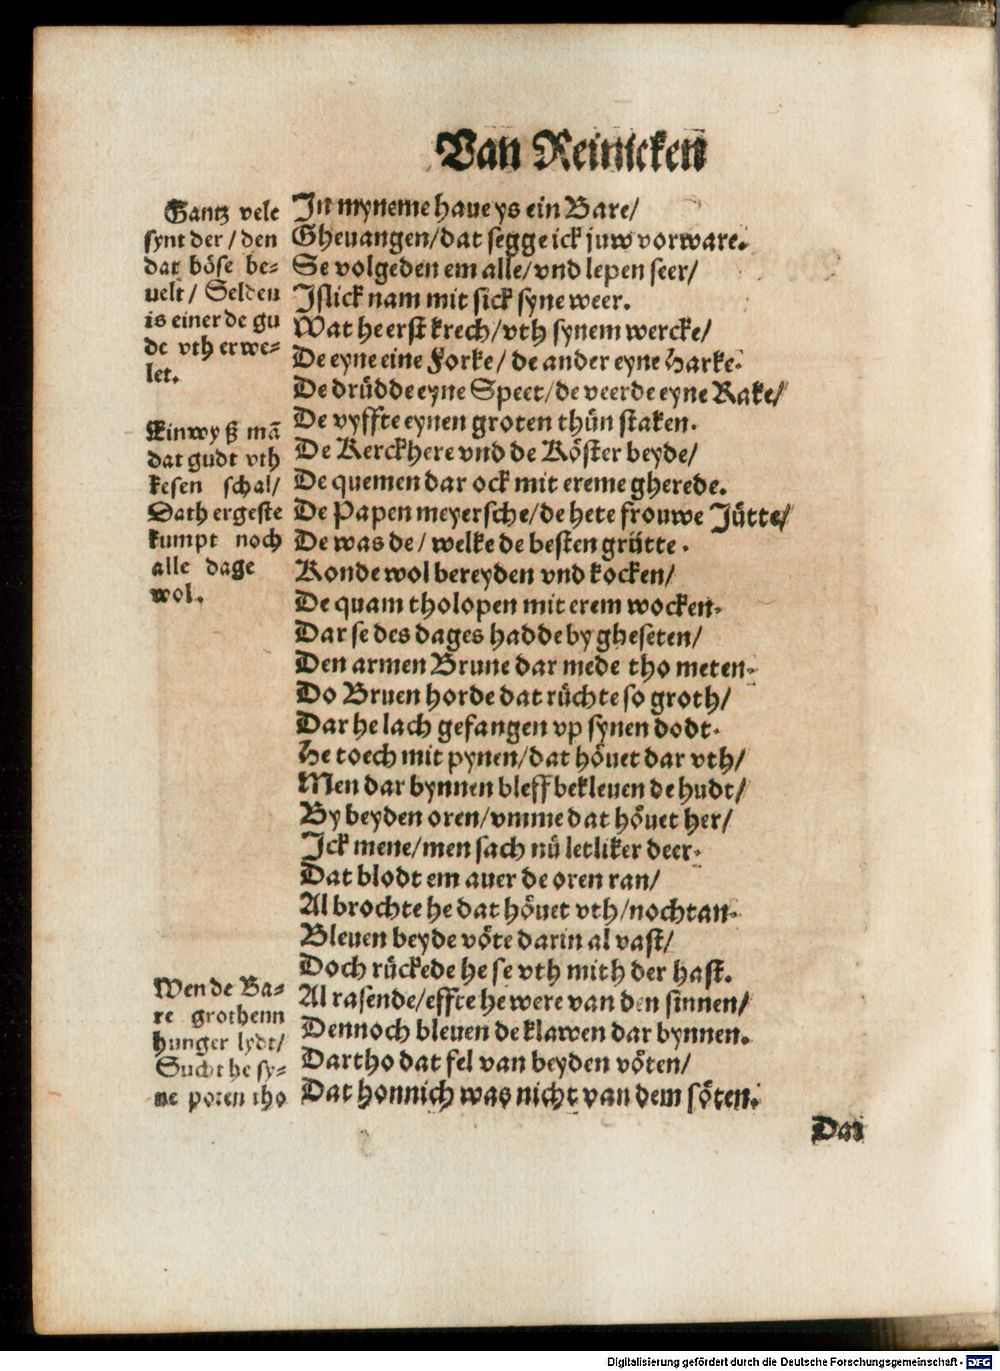 Van Reinicken
Gantz vele
synt der / den
dat böse be-
uelt / Selden
is einer de gu
de vth erwe-
let.
Einwyß mā
dat gudt vth
kesen schal/
Dath ergeste
kumpt noch
alle dage
wol.
Wen de Ba-
re grothenn
hunger lydt/
Sucht he sy-
ne poten tho
In myneme haue ys ein Bare/
Gheuangen/dat segge ick juw vorware.
Se volgeden em alle/vnd lepen seer/
Islick nam mit sick syne weer.
Wat he erst krech/vth synem wercke/
De eyne eine Forke/ de ander eyne Harke.
De drüdde eyne Speet/de veerde eyne Rake/
De vyffte eynen groten thün staken.
De Kerckhere vnd de Köster beyde/
De quemen dar ock mit ereme gherede.
De Papen meyersche/de hete frouwe Jütte/
De was de/ welke de besten grütte.
Konde wol bereyden vnd kocken/
De quam tholopen mit erem wocken.
Dar se des dages hadde by gheseten/
Den armen Brune dar mede tho meten.
Do Bruen horde dat rüchte so groth/
Dar he lach gefangen vp synen dodt.
He toech mit pynen/dat höuet dar vth/
Men dar bynnen bleff bekleuen de hudt/
By beyden oren/vmme dat höuet her/
Ick mene/men sach nü letliker deer.
Dat blodt em auer de oren ran/
Al brochte he dat höuet vth/nochtan.
Bleuen beyde vöte darin al vast/
Doch rückede he se vth mith der hast.
Al rasende/effte he were van den sinnen/
Dennoch bleuen de klawen dar bynnen.
Dartho dat fel van beyden vöten/
Dat honnich was nicht van dem söten.
Dat
Digitalisierung gefördert durch die Deutsche Forschungsgemeinschaft - DFG